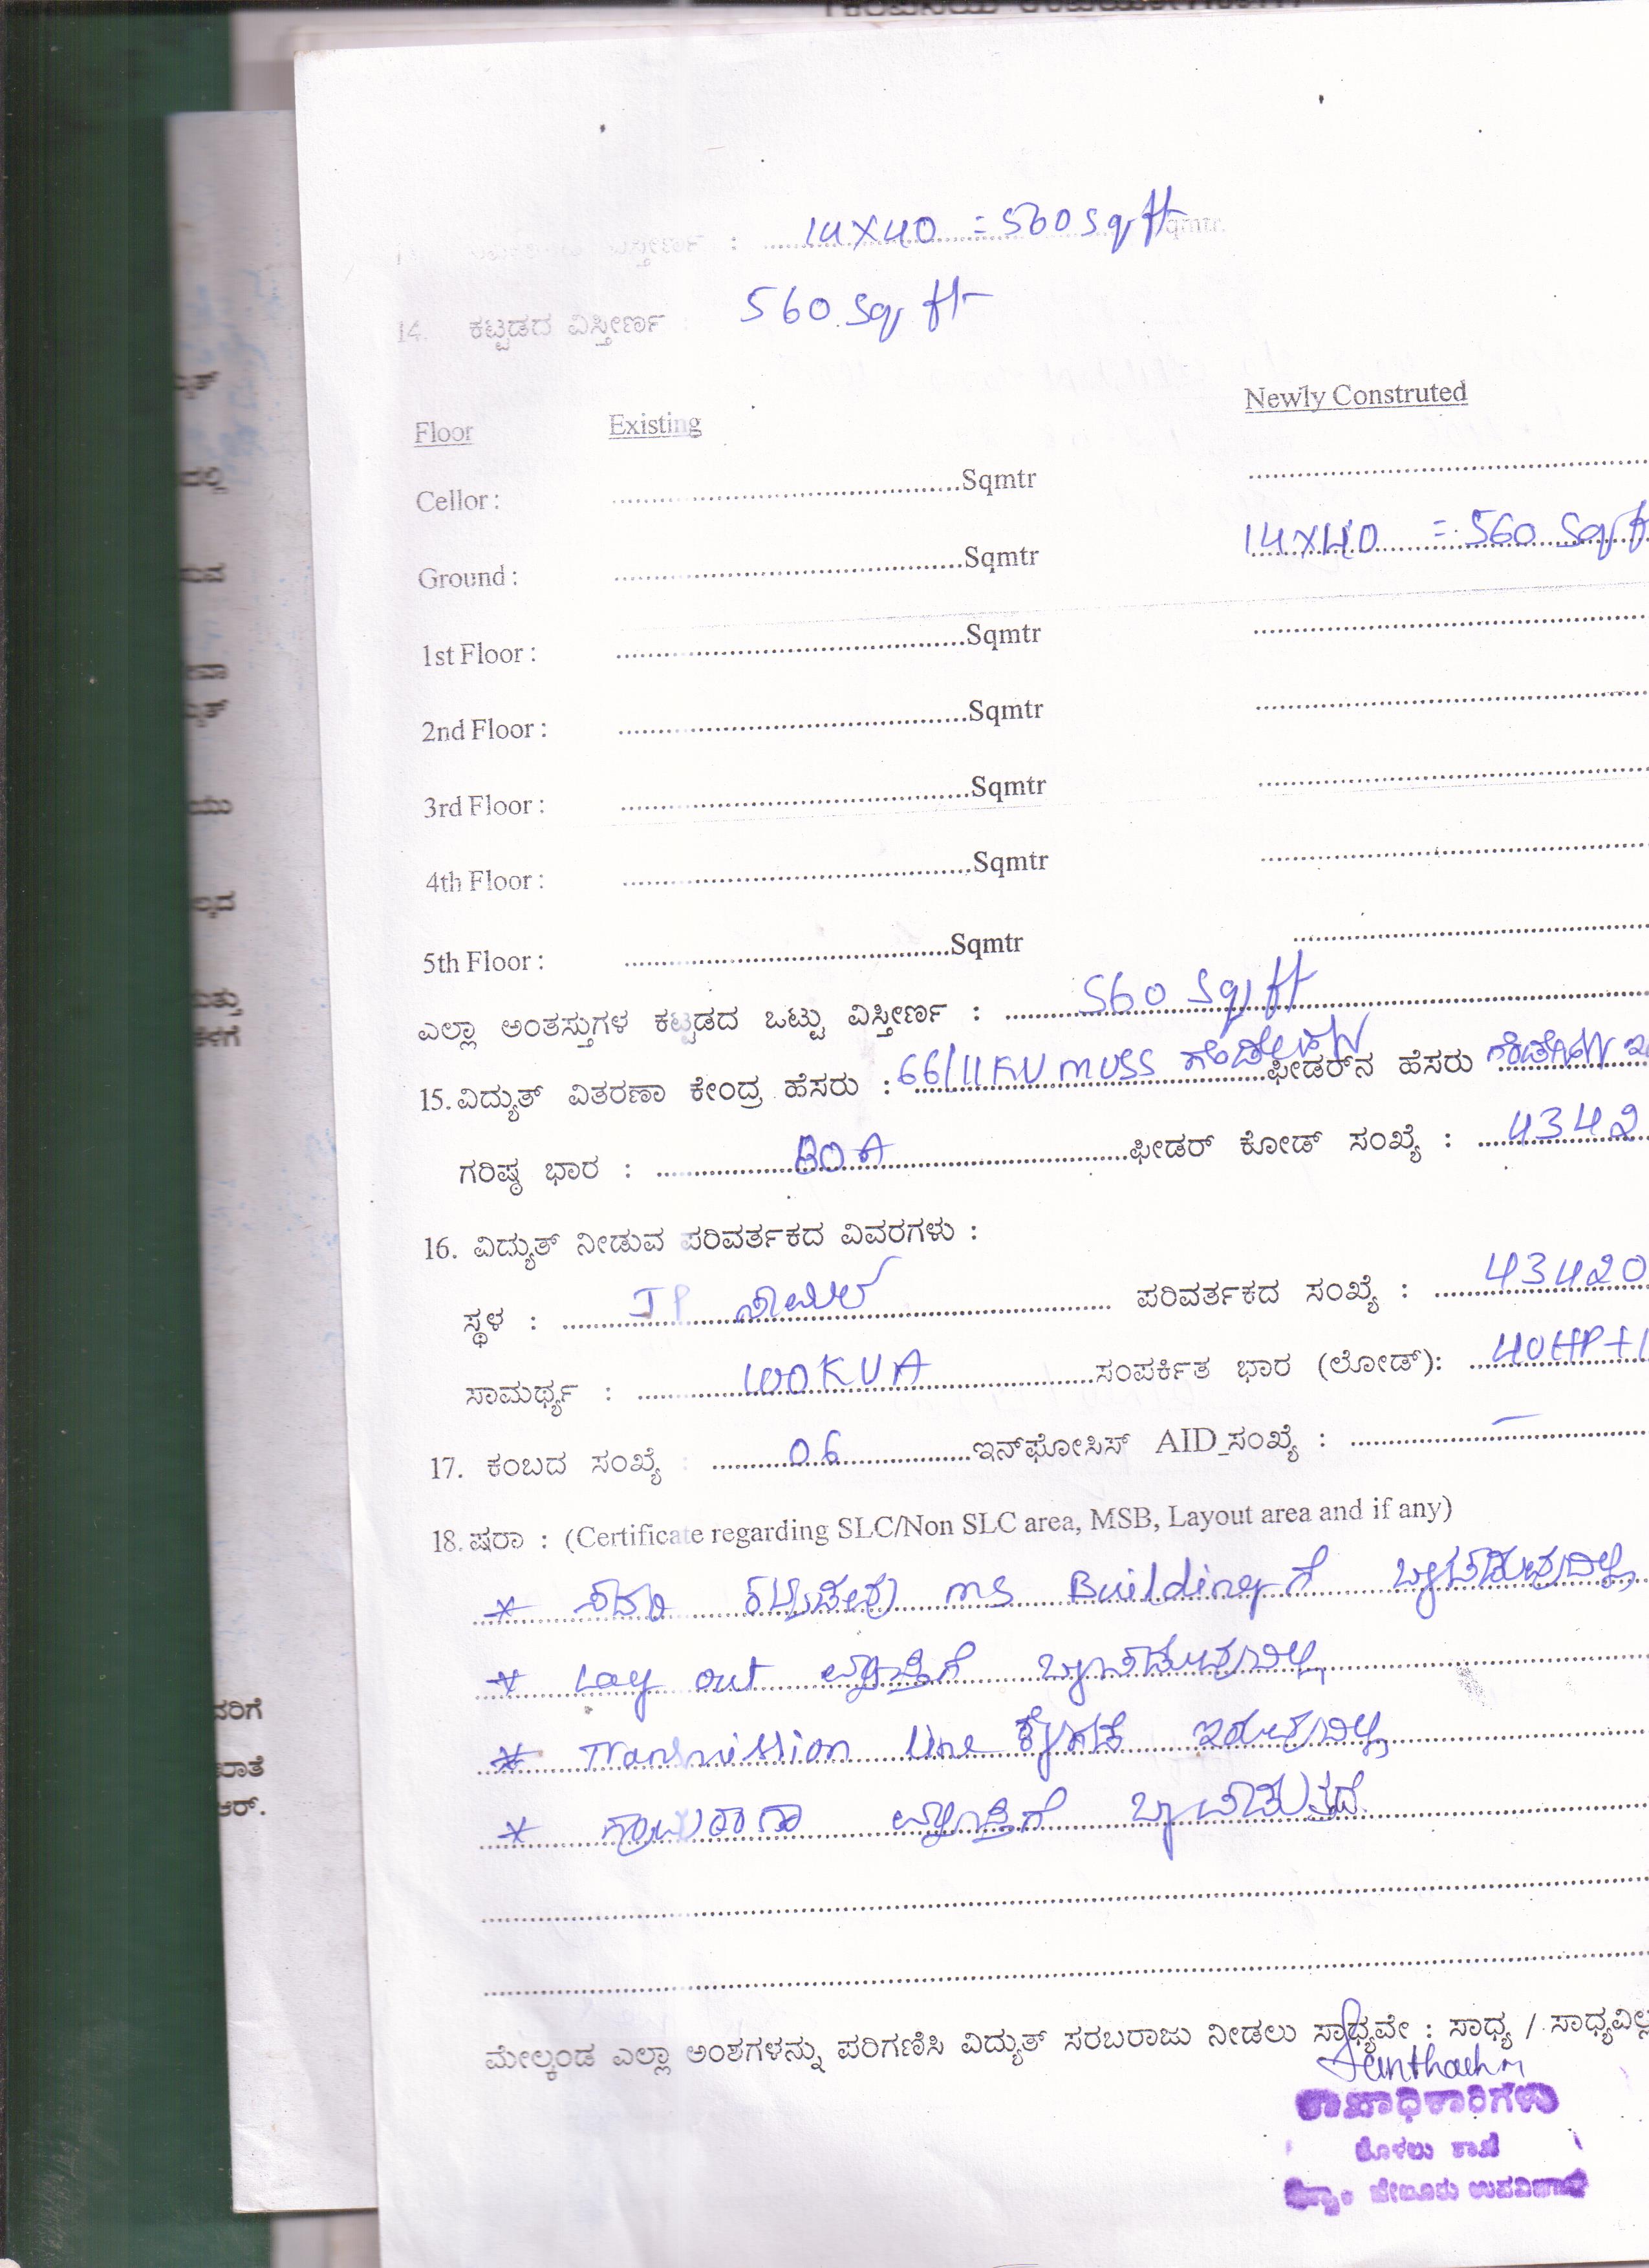 14X40 = 560 Sq ft Sqmtr.
14. ಕಟ್ಟಡದ ವಿಸ್ತೀರ್ಣ : 560 Sq ft
Floor Existing Newly Construted
Cellor : ........Sqmtr ........
Ground : ........Sqmtr 14X40 = 560 Sq ft
1st Floor : ........Sqmtr ........
2nd Floor : ........Sqmtr ........
3rd Floor : ........Sqmtr ........
4th Floor : ........Sqmtr ........
5th Floor : ........Sqmtr ........
ಎಲ್ಲಾ ಅಂತಸ್ತುಗಳ ಕಟ್ಟಡದ ಒಟ್ಟು ವಿಸ್ತೀರ್ಣ : 560 Sq ft
15. ವಿದ್ಯುತ್ ವಿತರಣಾ ಕೇಂದ್ರ ಹೆಸರು : 66/11KV MUSS ಫೀಡರ್‌ನ ಹೆಸರು
ಗರಿಷ್ಠ ಭಾರ : 80A ಫೀಡರ್ ಕೋಡ್ ಸಂಖ್ಯೆ : 4342
16. ವಿದ್ಯುತ್ ನೀಡುವ ಪರಿವರ್ತಕದ ವಿವರಗಳು :
ಸ್ಥಳ : ಪರಿವರ್ತಕದ ಸಂಖ್ಯೆ : 43420
ಸಾಮರ್ಥ್ಯ : 100KVA ಸಂಪರ್ಕಿತ ಭಾರ (ಲೋಡ್): 40HP+1
17. ಕಂಬದ ಸಂಖ್ಯೆ : 06 ಇನ್‌ಫೋಸಿಸ್ AID_ಸಂಖ್ಯೆ : –
18. ಷರಾ : (Certificate regarding SLC/Non SLC area, MSB, Layout area and if any)
* ಸದರಿ ಕಟ್ಟಡವು MS Building ಗೆ ಒಳಪಡುವುದಿಲ್ಲ
* Lay out ವ್ಯಾಪ್ತಿಗೆ ಒಳಪಡುವುದಿಲ್ಲ
* Transmission line ಕೆಳಗಡೆ ಇರುವುದಿಲ್ಲ
* ಗ್ರಾಮಠಾಣಾ ವ್ಯಾಪ್ತಿಗೆ ಒಳಪಡುತ್ತದೆ.
ಮೇಲ್ಕಂಡ ಎಲ್ಲಾ ಅಂಶಗಳನ್ನು ಪರಿಗಣಿಸಿ ವಿದ್ಯುತ್ ಸರಬರಾಜು ನೀಡಲು ಸಾಧ್ಯವೇ : ಸಾಧ್ಯ / ಸಾಧ್ಯವಿಲ್ಲ
ಶಾಖಾಧಿಕಾರಿಗಳು
ಶಾಖೆ
ಉಪವಿಭಾಗ